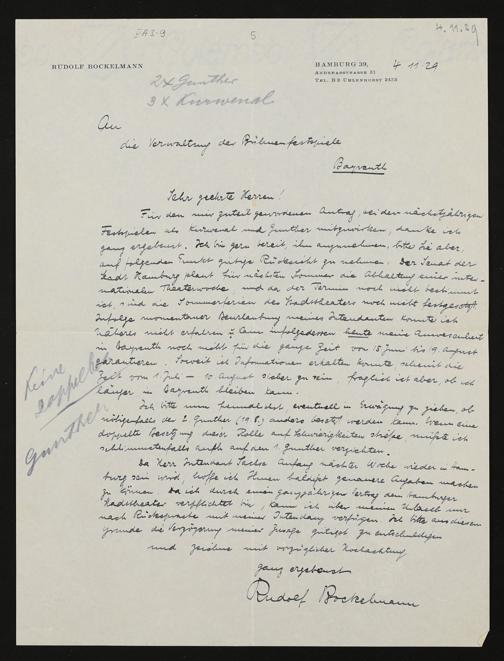 4. 11. 29
5
RUDOLF BOCKELMANN
HAMBURG 39, 4 11 29
ANDREASSTRASSE 31
TEL. B 2 UHLENHORST 2453
2 x Gunther
3 x Kurwenal
An
die Verwaltung der Bühnenfestspiele
Bayreuth
Sehr geehrte Herren!
Für den mir zuteil gewordenen Antrag, bei den nächstjährigen
Festspielen als Kurwenal und Gunther mitzuwirken, danke ich
ganz ergebenst. Ich bin gern bereit, ihn anzunehmen, bitte Sie aber,
auf folgenden Punkt gütige Rücksicht zu nehmen. Der Senat der
Stadt Hamburg plant für nächsten Sommer die Abhaltung einer inter-
nationalen Theaterwoche und da der Termin noch nicht bestimmt
ist, sind die Sommerferien des Stadttheaters noch nicht festgesetzt.
Infolge momentaner Beurlaubung meines Intendanten konnte ich
Näheres nicht erfahren u. kann infolgedessen heute meine Anwesenheit
in Bayreuth noch nicht für die ganze Zeit von 15 Juni bis 19. August
garantieren. Soweit ich Informationen erhalten konnte, scheint die
Zeit vom 1 Juli – 10 August sicher zu sein, fraglich ist aber, ob ich
länger in Bayreuth bleiben kann.
Ich bitte nun, eventuell in Erwägung zu ziehen, ob
nötigenfalls der 2. Gunther anders besetzt werden kann. Wenn eine
doppelte Besetzung dieser Rolle auf Schwierigkeiten stieße, müßte ich
schlimmstenfalls auch auf den 1. Gunther verzichten.
Da Herr Intendant Sachse Anfang nächster Woche wieder in Ham-
burg sein wird, hoffe ich Ihnen baldigst genauere Angaben machen
zu können. Da ich durch einen ganzjährigen Vertrag dem Hamburger
Stadttheater verpflichtet bin, kann ich über meinen Urlaub nur
nach Rücksprache mit meiner Intendanz verfügen. Ich bitte aus diesem
Grunde die Verzögerung meiner Zusage gütigst zu entschuldigen
und zeichne mit vorzüglicher Hochachtung
ganz ergebenst
Rudolf Bockelmann
Keine
Doppelbes
Gunther